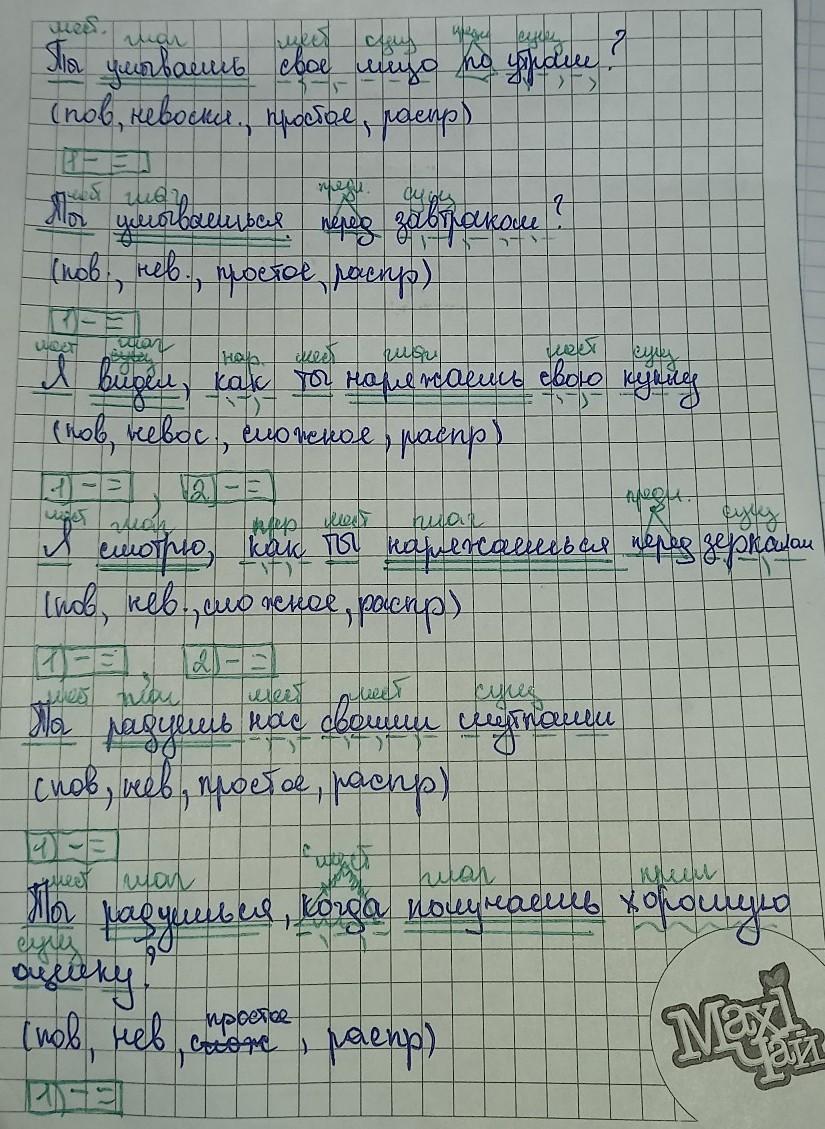 мест. глаг мест сущ предл сущ
Ты умываешь свое лицо по утрам?
(пов, невоскл., простое, распр)
[1 - =]
мест глаг предл. сущ
Ты умываешься перед завтраком?
(пов., нев., простое, распр)
[1) - =]
мест глаг нар. мест глаг мест сущ
Я видел, как ты наряжаешь свою куклу
(пов, невос., сложное, распр)
[1) - =], [2) - =]
мест глаг нар мест глаг предл. сущ
Я смотрю, как ты наряжаешься перед зеркалом
(пов, нев., сложное, распр)
[1) - =], [2) - =]
мест глаг мест мест сущ
Ты радуешь нас своими шутками
(пов, нев, простое, распр)
[1) - =]
мест глаг глаг прил
Ты радуешься, когда получаешь хорошую
сущ
оценку?
простое
(пов, нев, слож, распр)
[1) - =]
Maxi
Чай